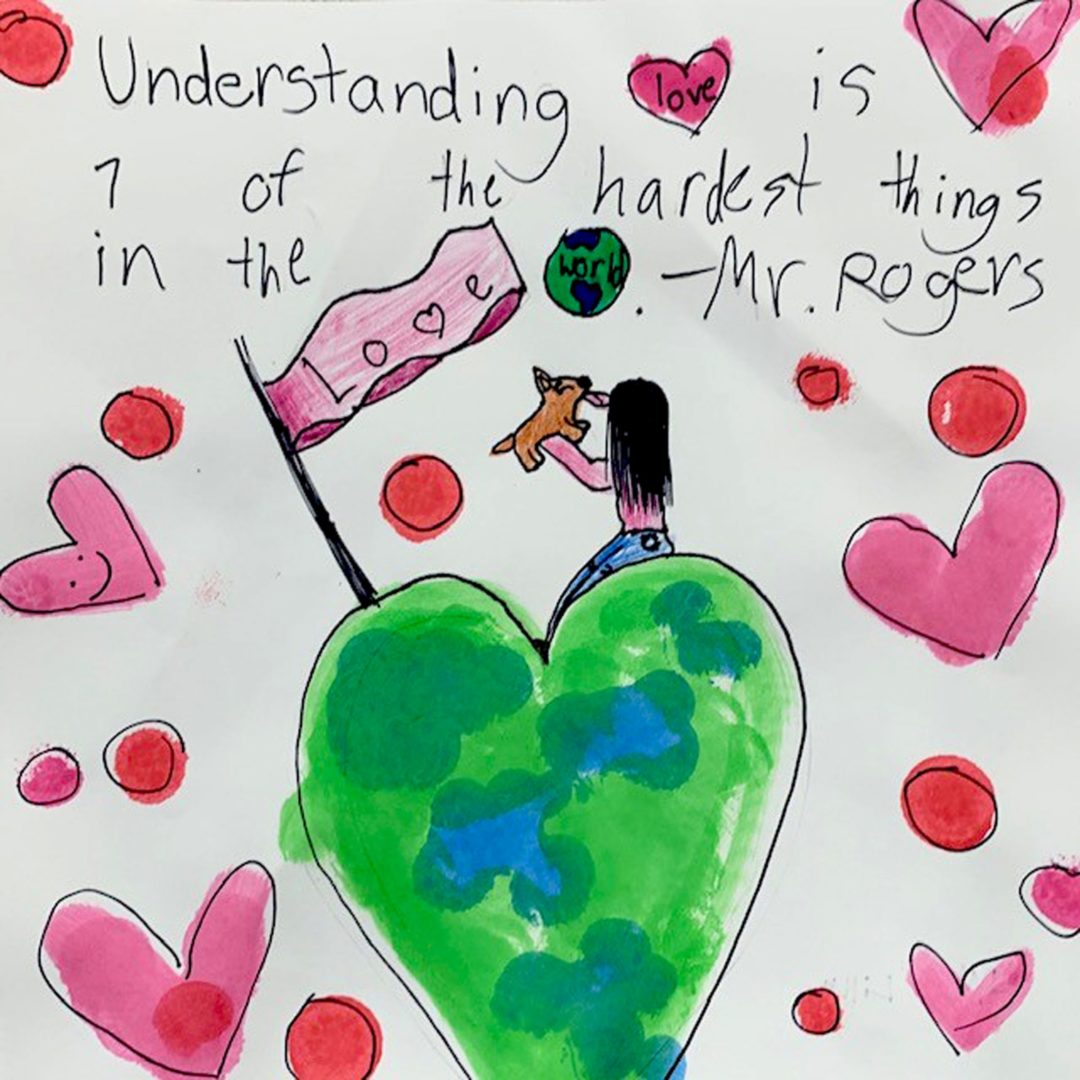 Understanding love is
1 of the hardest things
in the world. -Mr. Rogers
Love